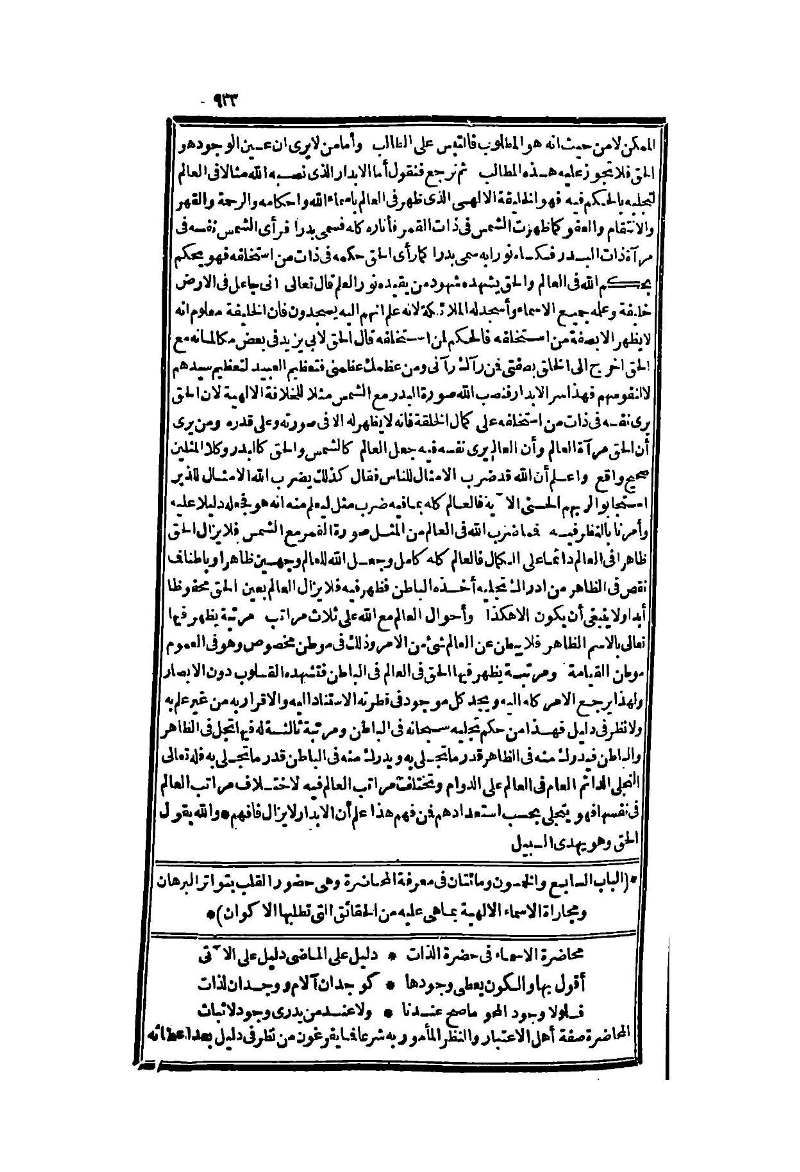 ٩٣٣
الممكن لا من حيث انه هو المطلوب فالتبس على الطالب وأما من لا يرى ان عين الوجود هو
الحق فلا تجوز عليه هذه المطالب ثم نرجع فنقول أما الابدار الذى نصبه الله مثالا فى العالم
لتجليه بالحكم فيه فهو الخليقة الالهى الذى ظهر فى العالم باسماء الله واحكامه والرحمة والقهر
والانتقام والعفو كما ظهرت الشمس فى ذات القمر فأناره كله فسمى بدرا فرأى الشمس نفسه فى
مرآة ذات البدر فكساه نورا به سمى بدرا كما رأى الحق حكمه فى ذات من استخلفه فهو يحكم
بحكم الله فى العالم والحق يشهده شهود من يفيده نور العلم قال تعالى انى جاعل فى الارض
خليفة وعلمه جميع الاسماء وأسجد له الملائكة لانه علم انهم اليه يسجدون فان الخليفة معلوم انه
لا يظهر الا بصفة من استخلفه فالحكم لمن استخلفه قال الحق لابى يزيد فى بعض مكالماته مع
الحق اخرج الى الخلق بصفتى فمن رآك رآنى ومن عظمك عظمنى فتعظيم العبيد لتعظيم سيدهم
لا لنفوسهم فهذا سر الابدار فنصب الله صورة البدر مع الشمس مثلا للخلافة الالهية لان الحق
يرى نفسه فى ذات من استخلفه على كمال الخلقة فانه لا يظهر له الا فى صورته وعلى قدره ومن يرى
أن الحق مرآة العالم وأن العالم يرى نفسه فيه جعل العالم كالشمس والحق كالبدر وكلا المثلين
صحيح واقع واعلم أن الله قد ضرب الامثال للناس فقال كذلك يضرب الله الامثال للذين
استجابوا لربهم الحسنى الآية فالعالم كله بما فيه ضرب مثل ليعلم منه انه هو فجعله دليلا عليه
وأمرنا بالنظر فيه فما ضرب الله فى العالم من المثل صورة القمر مع الشمس فلا يزال الحق
ظاهرا فى العالم دائما على الكمال فالعالم كله كامل وجعل الله للعالم وجهين ظاهرا وباطنا فما
نقص فى الظاهر من ادراك تجليه أخذه الباطن فظهر فيه فلا يزال العالم بعين الحق محفوظا
أبدا ولا ينبغى أن يكون الا هكذا وأحوال العالم مع الله على ثلاث مراتب مرتبة يظهر فيها
تعالى بالاسم الظاهر فلا يبطن عن العالم شئ من الامر وذلك فى موطن مخصوص وهو فى العموم
موطن القيامة ومرتبة يظهر فيها الحق فى العالم فى الباطن فتشهده القلوب دون الابصار
ولهذا يرجع الامر كله اليه ويجد كل موجود فى فطرته الاستناد اليه والاقرار به من غير علم به
ولا نظر فى دليل فهذا من حكم تجليه سبحانه فى الباطن ومرتبة ثالثة له فيها تجل فى الظاهر
والباطن فيدرك منه فى الظاهر قدر ما تجلى به ويدرك منه فى الباطن قدر ما تجلى به فله تعالى
التجلى الدائم العام فى العالم على الدوام وتختلف مراتب العالم فيه لاختلاف مراتب العالم
فى نفسها فهو يتجلى بحسب استعدادهم فمن فهم هذا علم أن الابدار لا يزال فافهم * والله يقول
الحق وهو يهدى السبيل
*(الباب السابع والخمسون ومائتان فى معرفة المحاضرة وهى حضور القلب بتواتر البرهان
ومجاراة الاسماء الالهية بما هى عليه من الحقائق التى تطلبها الاكوان)*
محاضرة الاسماء فى حضرة الذات * دليل على الماضى دليل على الآتى
أقول بها والكون يعطى وجودها * كوجدان آلام ووجدان لذات
فلولا وجود المحو ما صح عندنا * ولا عند من يدرى وجود لاثبات
المحاضرة صفة أهل الاعتبار والنظر المأمور به شرعا فما يفرغون من نظر فى دليل بعد اعطائه